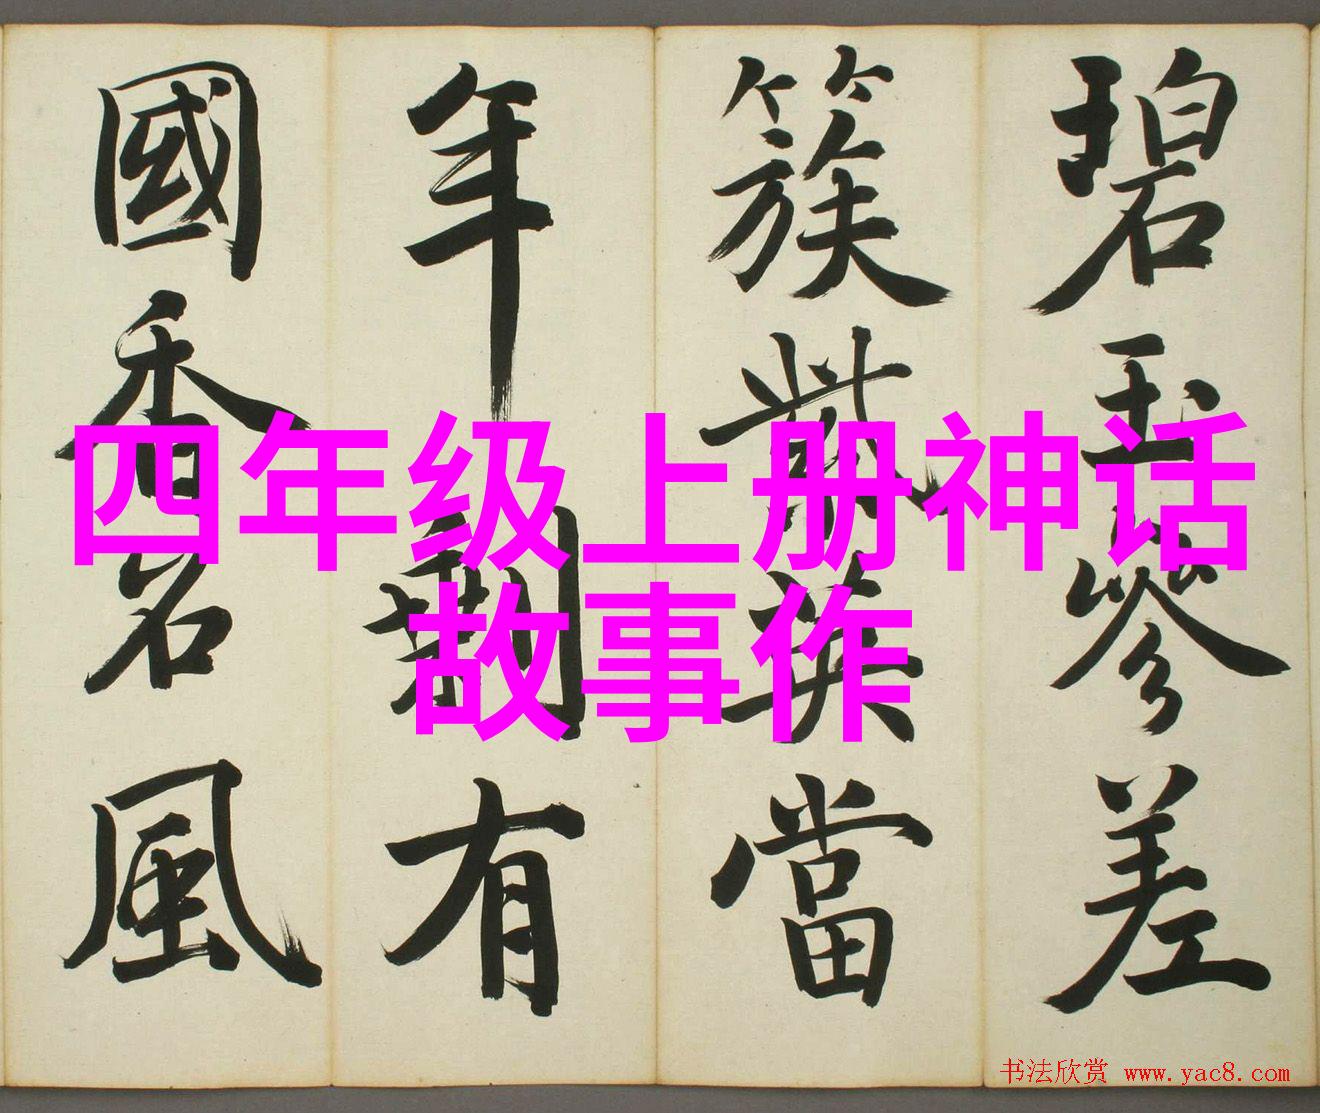 碧玉參差
簇紫英當
年有
國香名風
四年级上册神话
故事作
书法欣赏 www.yac8.com